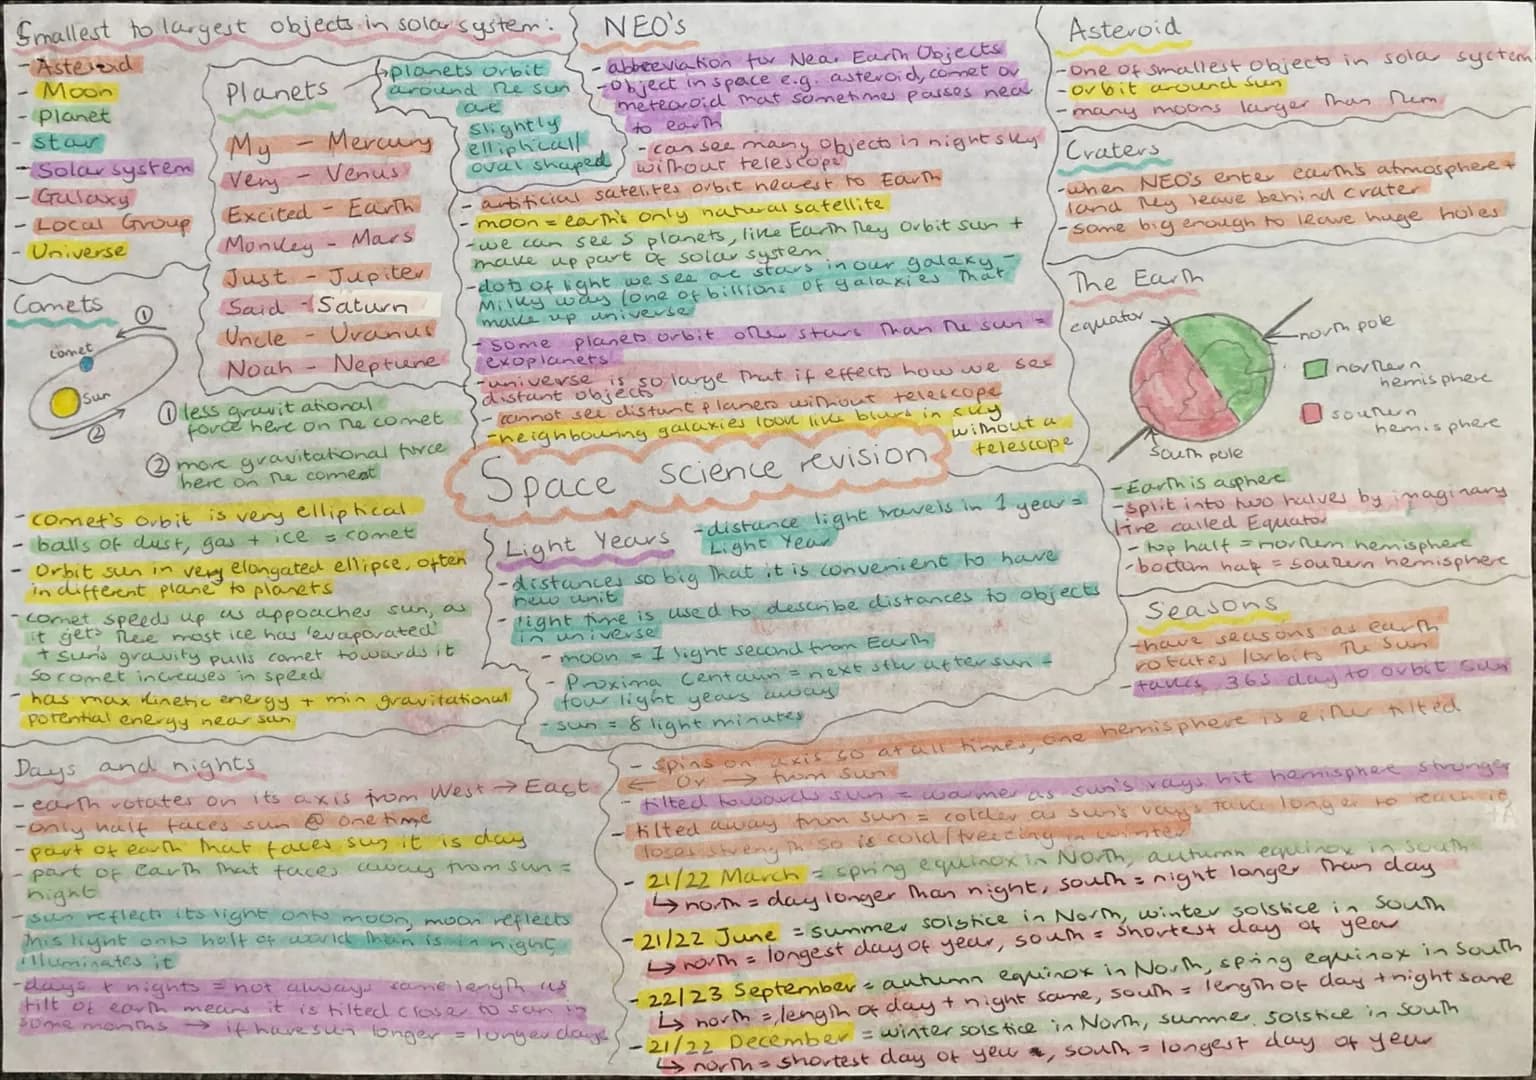 Smallest to largest objects in solar system:
- Asteroid
- Moon
- Planet
- star
- Solar system
- Galaxy
- Local Group
- Universe
Planets
My - Mercury
Very - Venus
Excited - Earth
Monkey - Mars
Just - Jupiter
Said - Saturn
Uncle - Uranus
Noah - Neptune
planets orbit
around the sun
are
slightly
elliptical/
oval shaped
NEO's
- abbreviation for Near Earth Objects
- object in space e.g. asteroid, comet or
meteoroid that sometimes passes near
to earth
- can see many objects in night sky
without telescope
- artificial satelites orbit nearest to Earth
- moon = earth's only natural satellite
- we can see 5 planets, like Earth they orbit sun +
make up part of solar system
- dots of light we see are stars in our galaxy -
Milky Way (one of billions of galaxies that
make up universe
- some planets orbit other stars than the sun =
exoplanets
- universe is so large that if effects how we see
distant objects
- cannot see distant planets without telescope
- neighbouring galaxies look like blurs in sky
without a
telescope
Asteroid
- one of smallest objects in solar system
- orbit around sun
- many moons larger than them
Craters
- when NEO's enter earth's atmosphere +
land they leave behind crater
- some big enough to leave huge holes
The Earth
equator
north pole
northern
hemisphere
southern
hemisphere
south pole
- Earth is a sphere
- split into two halves by imaginary
line called Equator
- top half = northern hemisphere
- bottom half = southern hemisphere
Comets
①
comet
Sun
②
① less gravitational
force here on the comet
② more gravitational force
here on the comest
- comet's orbit is very elliptical
- balls of dust, gas + ice = comet
- Orbit sun in very elongated ellipse, often
in different plane to planets
- comet speeds up as approaches sun, as
it gets there most ice has 'evaporated'
+ sun's gravity pulls comet towards it
so comet increases in speed
- has max kinetic energy + min gravitational
potential energy near sun
Space science revision
Light Years
- distance light travels in 1 year =
Light Year
- distances so big that it is convenient to have
new unit
- light time is used to describe distances to objects
in universe
- moon = 1 light second from Earth
- Proxima Centauri = next star after sun =
four light years away
- sun = 8 light minutes
Seasons
- have seasons as earth
rotates/orbits the sun
- takes 365 day to orbit sun
- spins on axis so at all times, one hemisphere is either tilted
← or → from sun
- tilted towards sun = warmer as sun's rays hit hemisphere stronger
- tilted away from sun = colder as sun's rays take longer to reach it
loses strength so is cold/freezing in winter
- 21/22 March = spring equinox in North, autumn equinox in south
↳ north = day longer than night, south = night longer than day
- 21/22 June = summer solstice in North, winter solstice in South
↳ north = longest day of year, south = shortest day of year
- 22/23 September = autumn equinox in North, spring equinox in South
↳ north = length of day + night same, south = length of day + night same
- 21/22 December = winter solstice in North, summer solstice in South
↳ north = shortest day of year, south = longest day of year
Days and nights
- earth rotates on its axis from West → East
- only half faces sun @ one time
- part of earth that faces sun it is day
- part of Earth that faces away from sun =
night
- sun reflects its light onto moon, moon reflects
this light onto half of world than is in night,
illuminates it
- days + nights = not always same length as
tilt of earth means it is tilted closer to sun in
some months → if have sun longer = longer days